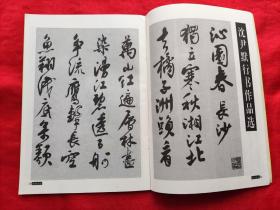 沈尹默行书作品选
沁園春 長沙
獨立寒秋湘江北
去橘子洲頭看
萬山紅遍層林盡
染漫江碧透百舸
爭流鷹擊長空
魚翔淺底萬類